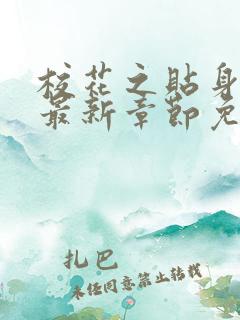 校花之贴身
最新章节免
扎巴
未经同意禁止转载